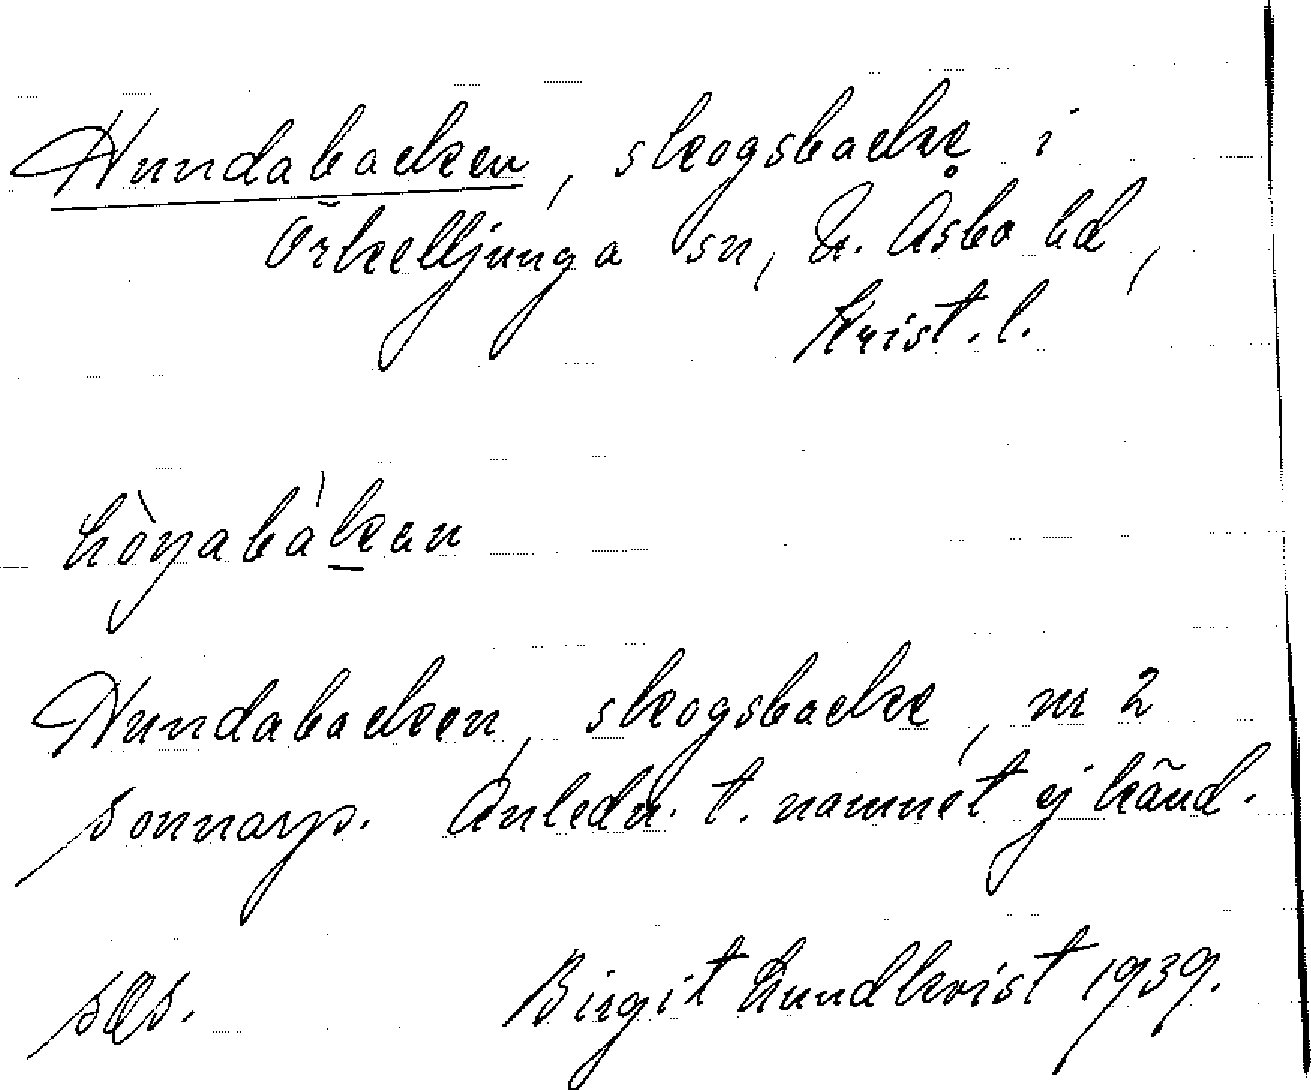 Hundabacken, skogsbacke i
Örkelljunga sn, N. Åsbo hd,
Krist. l.
Hundabacken, skogsbacke, nr 2
Sonnarp. Anledn. t. namnet ej känd.
Birgit Lundkvist 1939.